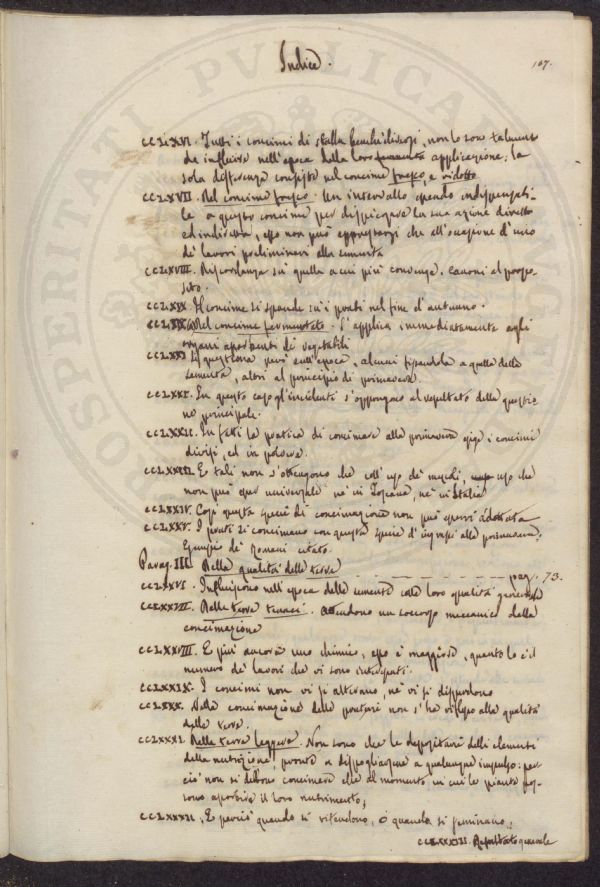 Indice.
167.
CCLXVI. Tutti i concimi di stalla benchè diversi, non lo sono talmente
da influire nell'epoca della loro applicazione; la
sola differenza consiste nel concime fresco, e ridotto
CCLXVII. Nel concime fresco. Un intervallo essendo indispensabi-
le a questo concime per dispiegare la sua azione diretta
ed indiretta, esso non può apprestarsi che all'occasione d'uno
de' lavori preliminari alla sementa
CCLXVIII. Ricordanza su quella a cui più convenga. Canoni al propo-
sito.
CCLXIX. Il concime si spande su i prati nel fine d'autunno.
Nel concime fermentato. S'applica immediatamente agli
organi assorbenti de' vegetabili
CCLXXI questiona però sull'epoca, alcuni fissandola a quella della
sementa, altri al principio di primavera.
CCLXXI. In questo caso gl'incidenti s'oppongono al resultato della questio-
ne principale.
CCLXXII. In fatti la pratica di concimare alla primavera esige i concimi
divisi, ed in polvere.
CCLXXIII. E tali non s'ottengono che coll'uso de' uso che
non può esser universale nè in Toscana, nè in Italia
CCLXXIV. Così questa specie di concimazione non può esservi adottata
CCLXXV. I prati si concimano con questa specie d'ingrassi alla primavera.
Esempio de' Romani citato.
Parag. III. Nella qualità delle terre _ _ _ _ _ _ pag. 73.
CCLXXVI. Influiscono nell'epoca delle sementa colle loro qualità generali
CCLXXVII. Nelle terre tenaci. Attendono un soccorso meccanico dalla
concimazione
CCLXXVIII. E più ancora uno chimico, esso è maggiore, quanto lo è il
numero de' lavori che vi sono intercipati.
CCLXXIX. I concimi non vi si alterano, nè vi si disperdono
CCLXXX. Nella concimazione delle non s'ha riflesso alla qualità
delle terre.
CCLXXXI. Nelle terre leggere. Non sono che le depositarie delli elementi
della nutrizione, pronte a dispogliarsene a qualunque impulso: per-
ciò non si debbono concimare che al momento in cui le piante pos-
sono assorbire il loro nutrimento;
CCLXXXII. E perciò quando si vitendono, o quando si seminano;
CCLXXXIII. Resultato generale